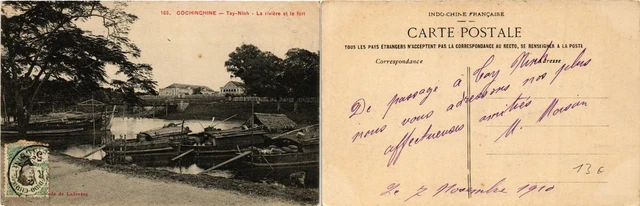 165. COCHINCHINE — Tay-Ninh - La rivière et le fort
INDO-CHINE FRANÇAISE
CARTE POSTALE
TOUS LES PAYS ÉTRANGERS N'ACCEPTENT PAS LA CORRESPONDANCE AU RECTO, SE RENSEIGNER A LA POSTE
Correspondance
Adresse
De passage à Tay Ninh
nous vous adressons nos plus
affectueuses amitiés
Le 7 Novembre 1910
13€